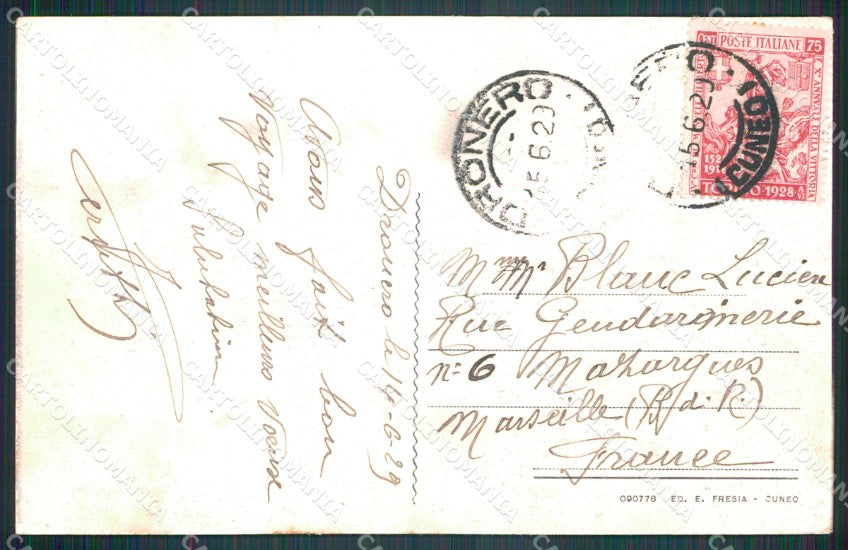 Dronero le 14-6-29
Avons fait bon
Voyage meillens Voeuse
Salutation
CENT POSTE ITALIANE 75
Xº ANNUALE DELLA VITTORIA
TORINO·1928·A
DRONERO
15.6.29
CUNEO
15.6.29
Mme Mr Blanc Lucien
Rue Gendarmerie
nº 6 Mazargues
Marseille (B. d. R.)
France
090776 ED. E. FRESIA - CUNEO
CARTOLINOMANIA